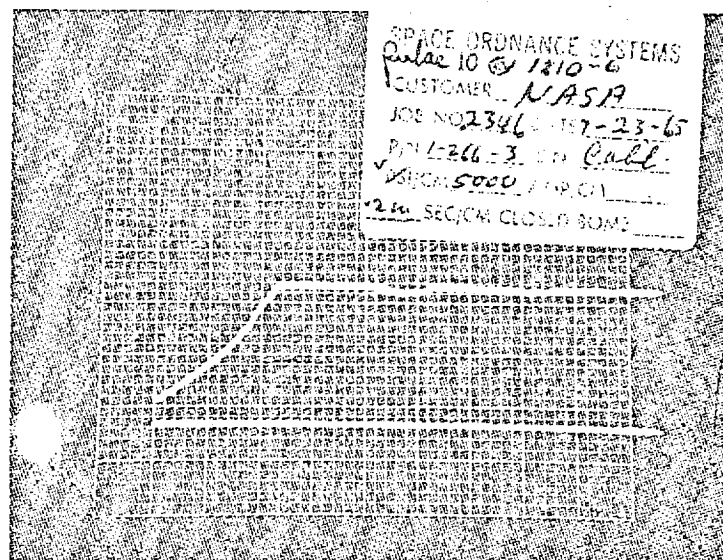 SPACE ORDNANCE SYSTEMS
Pulse 10 @ 1210-6
CUSTOMER NASA
JOB NO 2346 7-23-65
P/N 1-266-3
PSI/CM 5000 AMP/CM
SEC/CM CLOSED BOMB